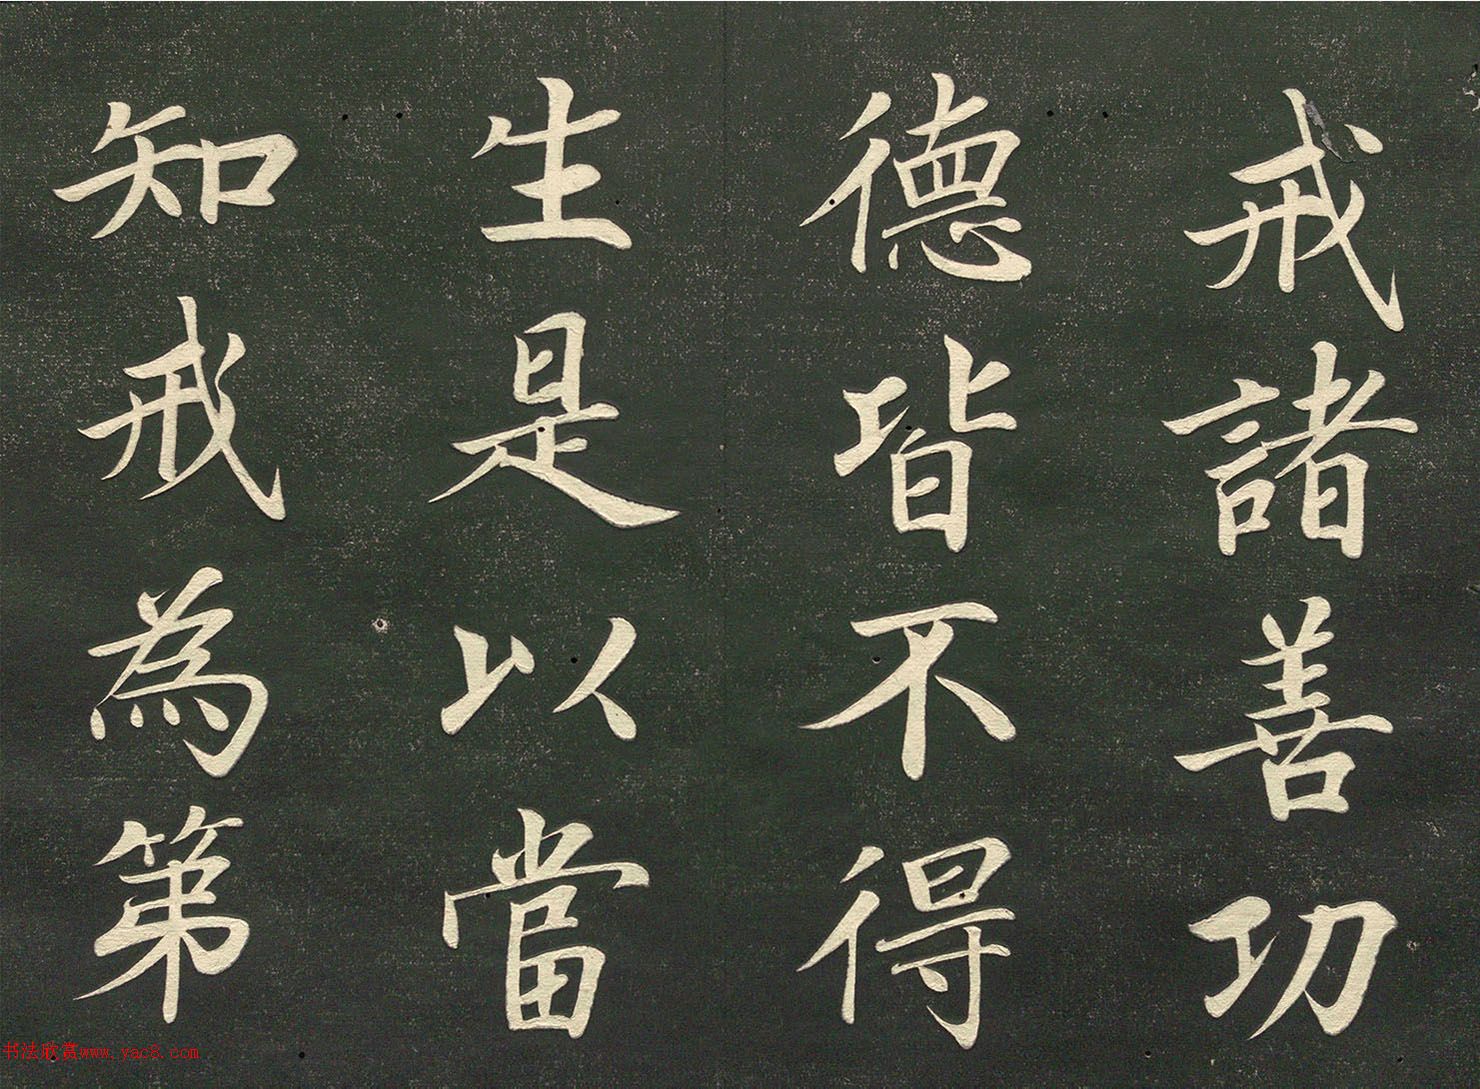 戒諸善功
德皆不得
生是以當
知戒為第
书法欣赏www.yac8.com